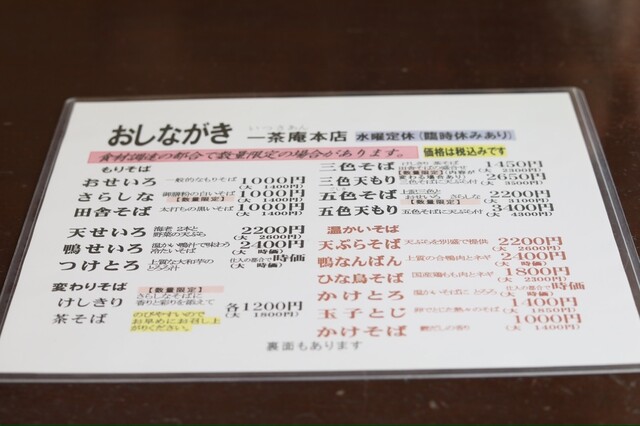 おしながき 一茶庵本店 いっさあん 水曜定休(臨時休みあり)
食材調達の都合で数量限定の場合があります。 価格は税込みです
もりそば
おせいろ 一般的なもりそば 1000円 (大 1400円)
さらしな 御膳粉の白いそば 【数量限定】 1000円 (大 1400円)
田舎そば 太打ちの黒いそば 1000円 (大 1400円)
天せいろ 海老2本と野菜の天ぷら 2200円 (大 2600円)
鴨せいろ 温かい鴨汁で味わう冷たいそば 2400円 (大 時価)
つけとろ 上質な大和芋のとろろ汁 仕入の都合で時価
変わりそば 【数量限定】
けしきり さらしなそばに香りと彩りを添えて
茶そば のびやすいのでお早めにお召し上がりください。
各1200円 (大 1800円)
三色そば けしきり 茶そば 田舎そばの組合せ 1450円 (大 2300円)
三色天もり 【数量限定】内容が変わる場合あり 三色そばに天ぷら付 2650円 (大 3500円)
五色そば 上記三色と おせいろ さらしな 【数量限定】 2200円 (大 3100円)
五色天もり 五色そばに天ぷら付 3400円 (大 4300円)
温かいそば
天ぷらそば 天ぷらを別盛で提供 2200円 (大 2600円)
鴨なんばん 上質の合鴨肉とネギ 2400円 (大 時価)
ひな鳥そば 国産鶏もも肉とネギ 1800円 (大 2300円)
かけとろ 温かいそばに とろろ 仕入の都合で時価
玉子とじ 1400円 (大 1850円)
かけそば 鰹だしの香り 1000円 (大 1400円)
裏面もあります